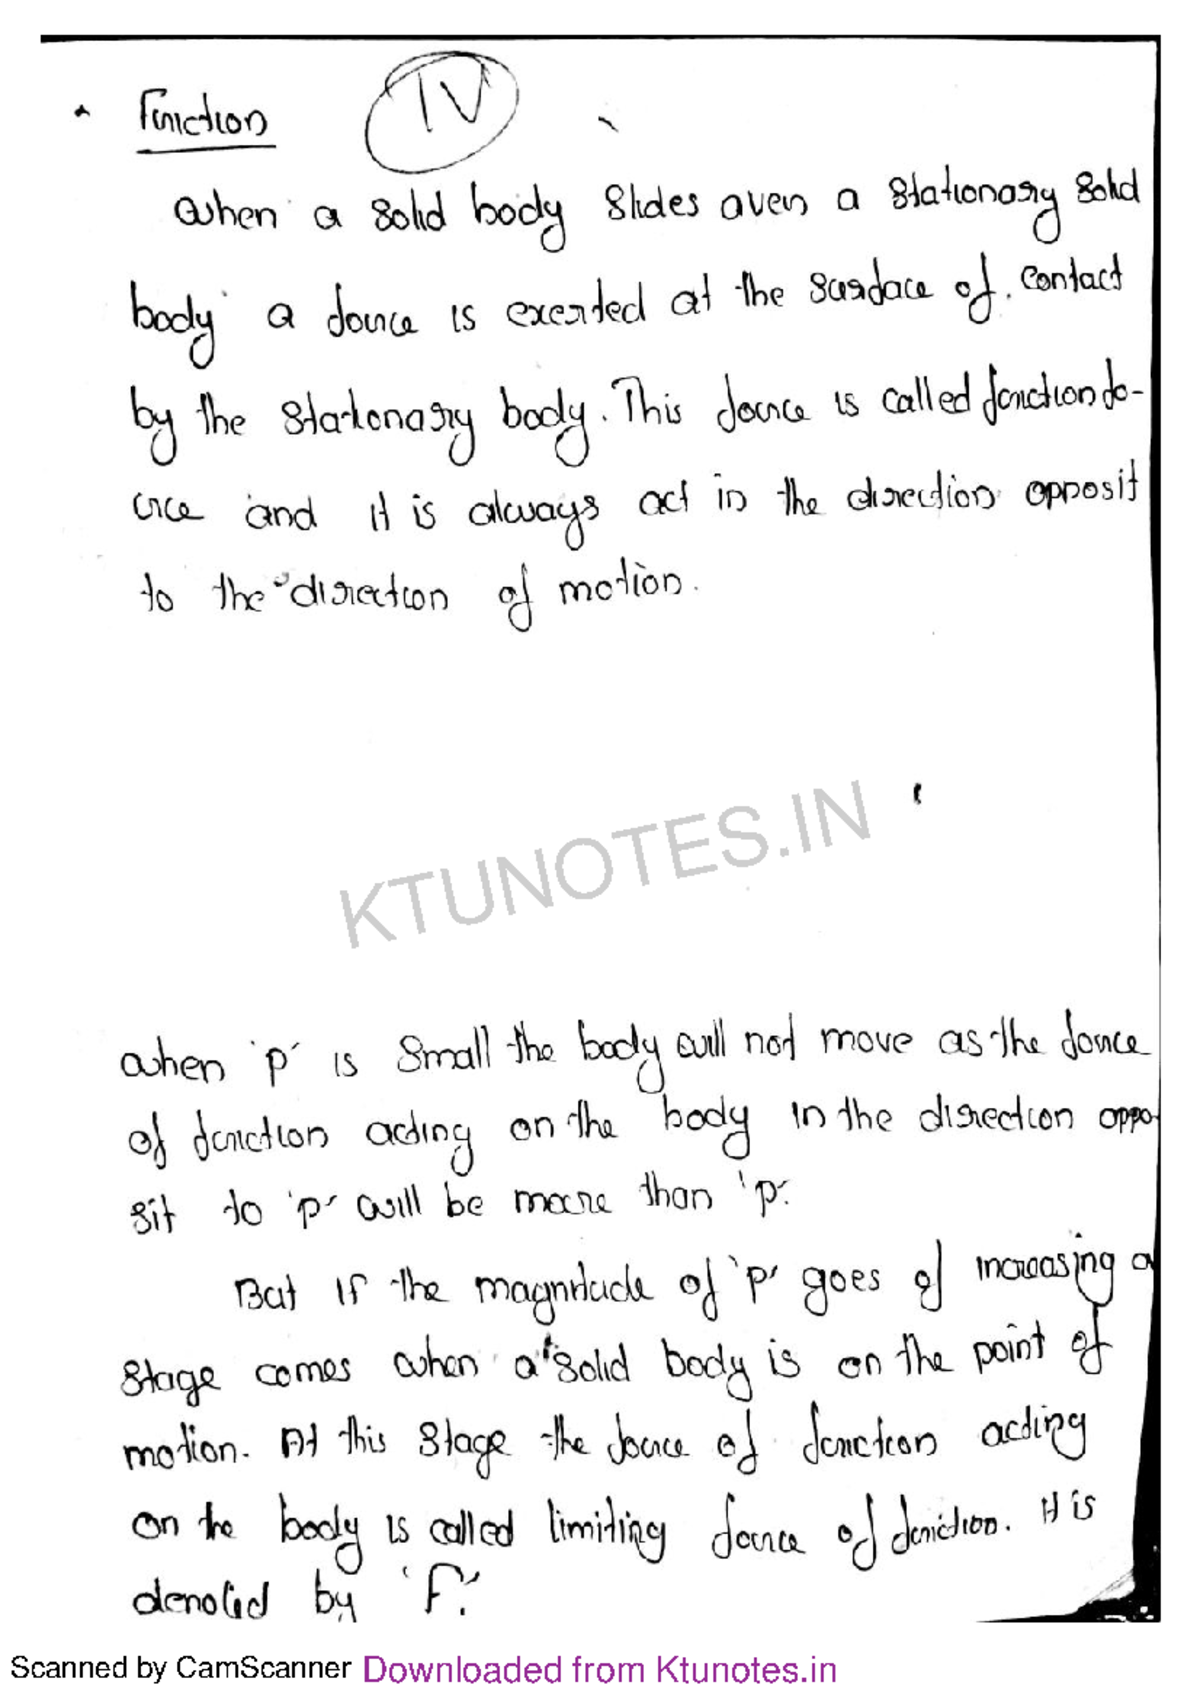 Friction
IV
When a solid body slides over a stationary solid
body a force is exerted at the surface of contact
by the stationary body. This force is called friction fo-
rce and it is always act in the direction opposit
to the direction of motion.
KTUNOTES.IN
When 'p' is small the body will not move as the force
of friction acting on the body in the direction oppo-
sit to 'p' will be more than 'p'.
But if the magnitude of 'p' goes of increasing a
stage comes when a solid body is on the point of
motion. At this stage the force of friction acting
on the body is called limiting force of friction. It is
denoted by 'F'.
Scanned by CamScanner Downloaded from Ktunotes.in